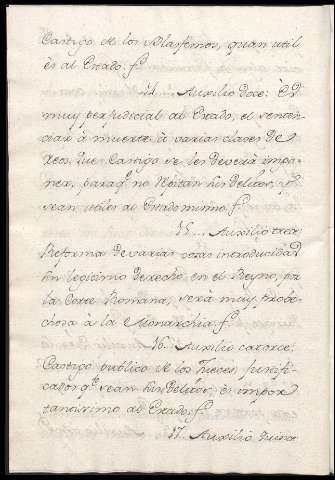 Castigo de los Blasfemos, quan util
és al Estado. f.º
14. Auxilio Doce: Es
muy perjudicial al Estado, el senten-
ciar à muerte à varias clases de
Reos. Que Castigo se les deverà impo-
ner, paraq.e no Repitan sus Delitos, y
sean utiles al Estado mismo. f.º
15... Auxilio trece
Reforma de varias cosas introducidas
sin legitimo derecho en el Reyno, por
la Corte Romana, serà muy probe-
chosa à la Monarchia. f.º
16. Auxilio catorce:
Castigo público de los Jueces, justifi-
cados q.e sean sus Delitos, és impor-
tantissimo al Estado. f.º
17. Auxilio Quince